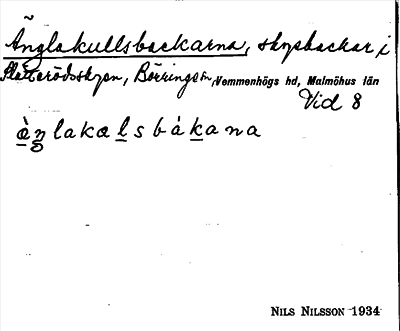 Änglakullsbackarna, skogsbackar i
Slätterödsskogen, Börringe sn, Vemmenhögs hd, Malmöhus län
Vid 8
æ̀ŋlakalsbákana
NILS NILSSON 1934